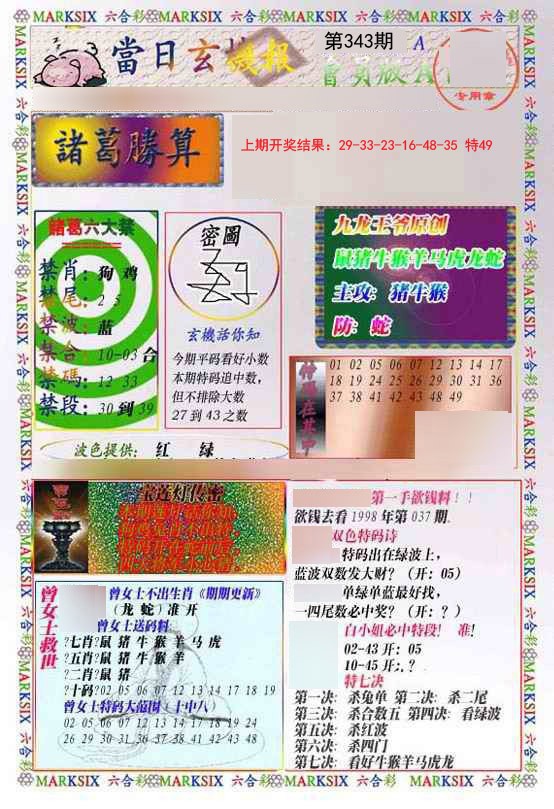 MARKSIX 六合彩 MARKSIX 六合彩 MARKSIX 六合彩 MARKSIX 六合彩
當日玄機報
第343期
A
會員版A
专用章
諸葛勝算
上期开奖结果：29-33-23-16-48-35 特49
諸葛六大禁
禁肖：狗 鸡
禁尾：2 5
禁波：蓝
禁合：10-03 合
禁碼：12 33
禁段：30 到 39
密圖
玄機話你知
今期平码看好小数
本期特码追中数，
但不排除大数
27 到 43 之数
九龙王爷原创
鼠猪牛猴羊马虎龙蛇
主攻：猪牛猴
防：蛇
特碼在其中
01 02 05 06 07 12 13 14 17
18 19 24 25 26 29 30 31 36
37 38 41 42 43 48 49
波色提供： 红 绿
宝连灯传密
第一手欲钱料！！
欲钱去看 1998 年第 037 期.
双色特码诗
特码出在绿波上，
蓝波双数发大财？（开：05）
单绿单蓝最好找，
一四尾数必中奖？（开：？）
白小姐必中特段！ 准！
02-43 开：05
10-45 开：？
特七决
第一决：杀兔单 第二决：杀二尾
第三决：杀合数五 第四决：看绿波
第五决：杀红波
第六决：杀四门
第七决：看好牛猴羊马虎龙
曾女士救世
曾女士不出生肖《期期更新》
（龙 蛇）准 开
曾女士送码料
?七肖?鼠 猪 牛 猴 羊 马 虎
?五肖?鼠 猪 牛 猴 羊
?二肖?鼠 猪
?十码?02 05 06 07 12 13 14 17 18 19
曾女士特码大范围（十中八）
02 05 06 07 12 13 14 17 18 19 24
26 29 30 31 36 37 38 41 42 43 48
MARKSIX 六合彩 MARKSIX 六合彩 MARKSIX 六合彩 MARKSIX 六合彩